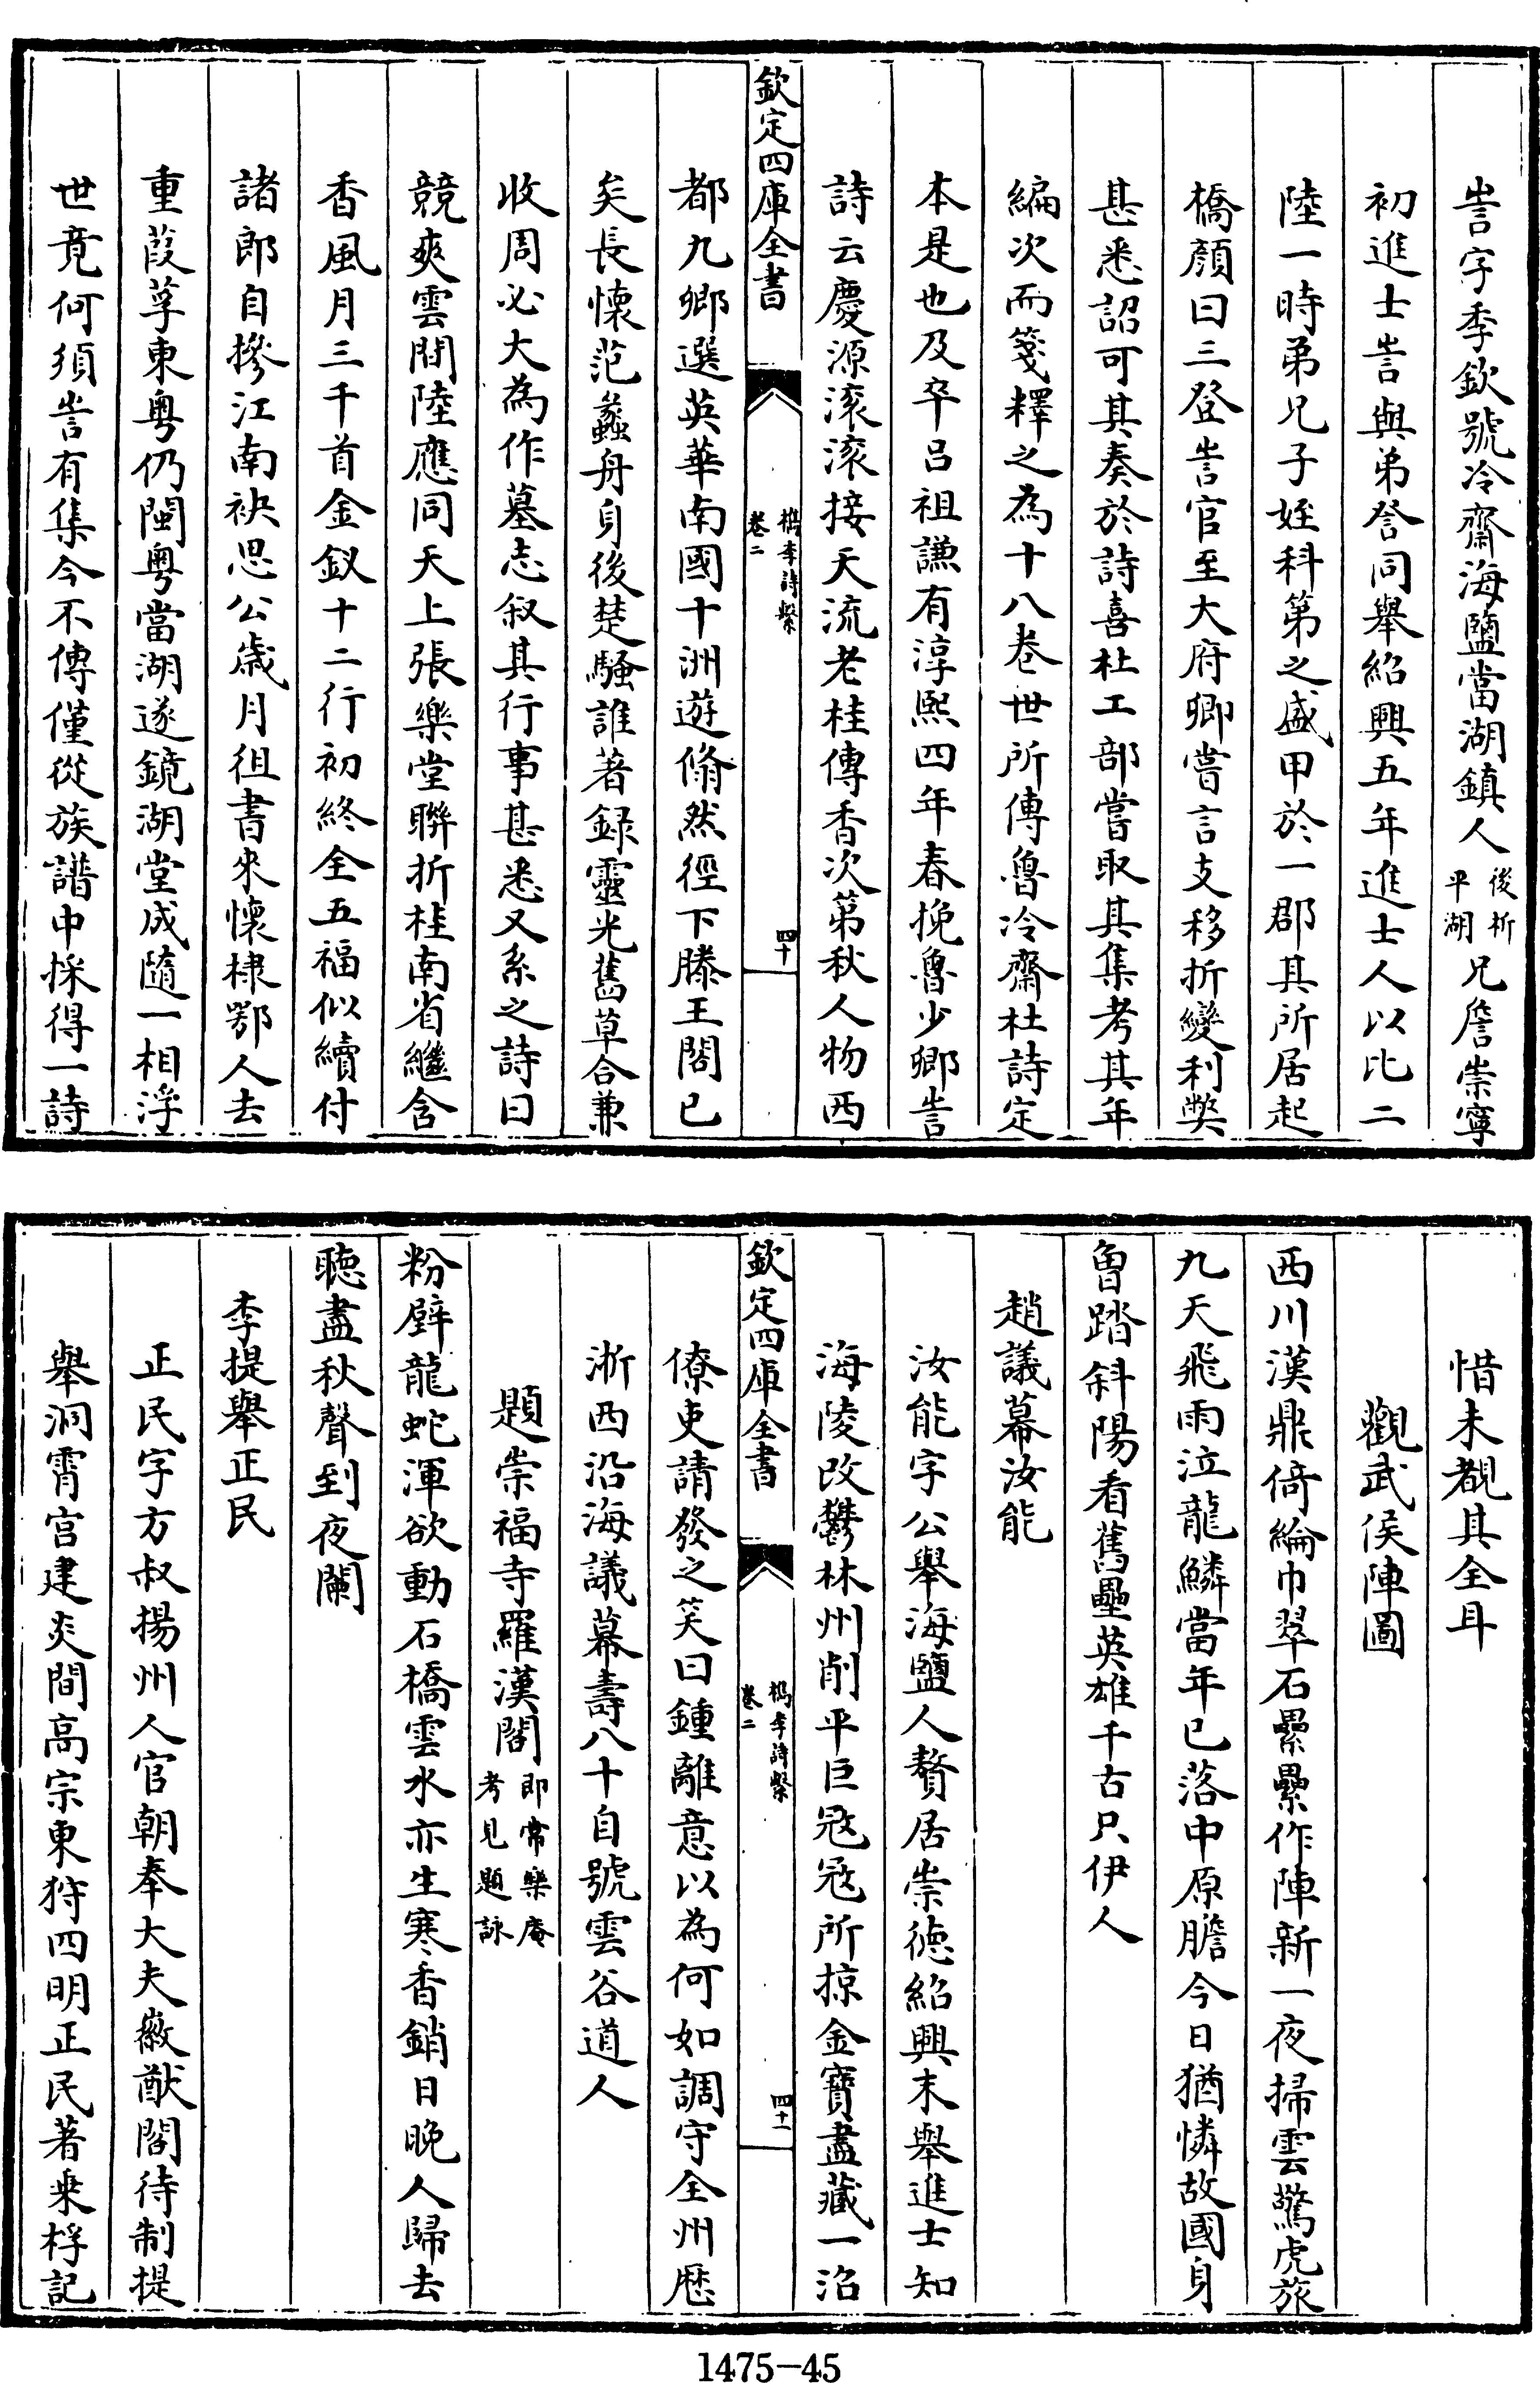 訔字季欽號冷齋海鹽當湖鎮人後析平湖兄詹崇寧
初進士訔與弟䇓同舉紹興五年進士人以比二
陸一時弟兄子姪科第之盛甲於一郡其所居起
橋顏曰三登訔官至大府卿嘗言支移折變利獘
甚悉詔可其奏於詩喜杜工部嘗取其集考其年
編次而箋釋之為十八卷世所傳魯冷齋杜詩定
本是也及卒吕祖謙有淳熙四年春挽魯少卿訔
詩云慶源滚滚接天流老桂傳香次第秋人物西
欽定四庫全書
檇李詩繫
卷二
四十
都九卿選英華南國十洲遊翛然徑下滕王閣已
矣長懷范蠡舟身後楚騷誰著録靈光舊草合兼
收周必大為作墓志叙其行事甚悉又系之詩曰
競爽雲間陸應同天上張樂堂聯折桂南省繼含
香風月三千首金釵十二行初終全五福似續付
諸郎自摻江南袂思公歲月徂書來懷棣鄂人去
重葭莩東粤仍閩粤當湖遂鏡湖堂成隨一相浮
世竟何須訔有集今不傳僅從族譜中採得一詩
惜未覩其全耳
觀武侯陣圖
西川漢鼎倚綸巾翠石纍纍作陣新一夜掃雲驚虎旅
九天飛雨泣龍鱗當年已落中原膽今日猶憐故國身
曽踏斜陽看舊壘英雄千古只伊人
趙議幕汝能
汝能字公舉海鹽人贅居崇徳紹興末舉進士知
海陵改鬱林州削平巨冦冦所掠金寳盡藏一治
欽定四庫全書
檇李詩繫
卷二
四十一
僚吏請發之笑曰鍾離意以為何如調守全州厯
浙西沿海議幕壽八十自號雲谷道人
題崇福寺羅漢閣即常樂庵考見題詠
粉壁龍蛇渾欲動石橋雲水亦生寒香銷日晚人歸去
聴盡秋聲到夜闌
李提舉正民
正民字方叔揚州人官朝奉大夫徽猷閣待制提
舉洞霄宫建炎間高宗東狩四明正民著乘桴記
1475-45